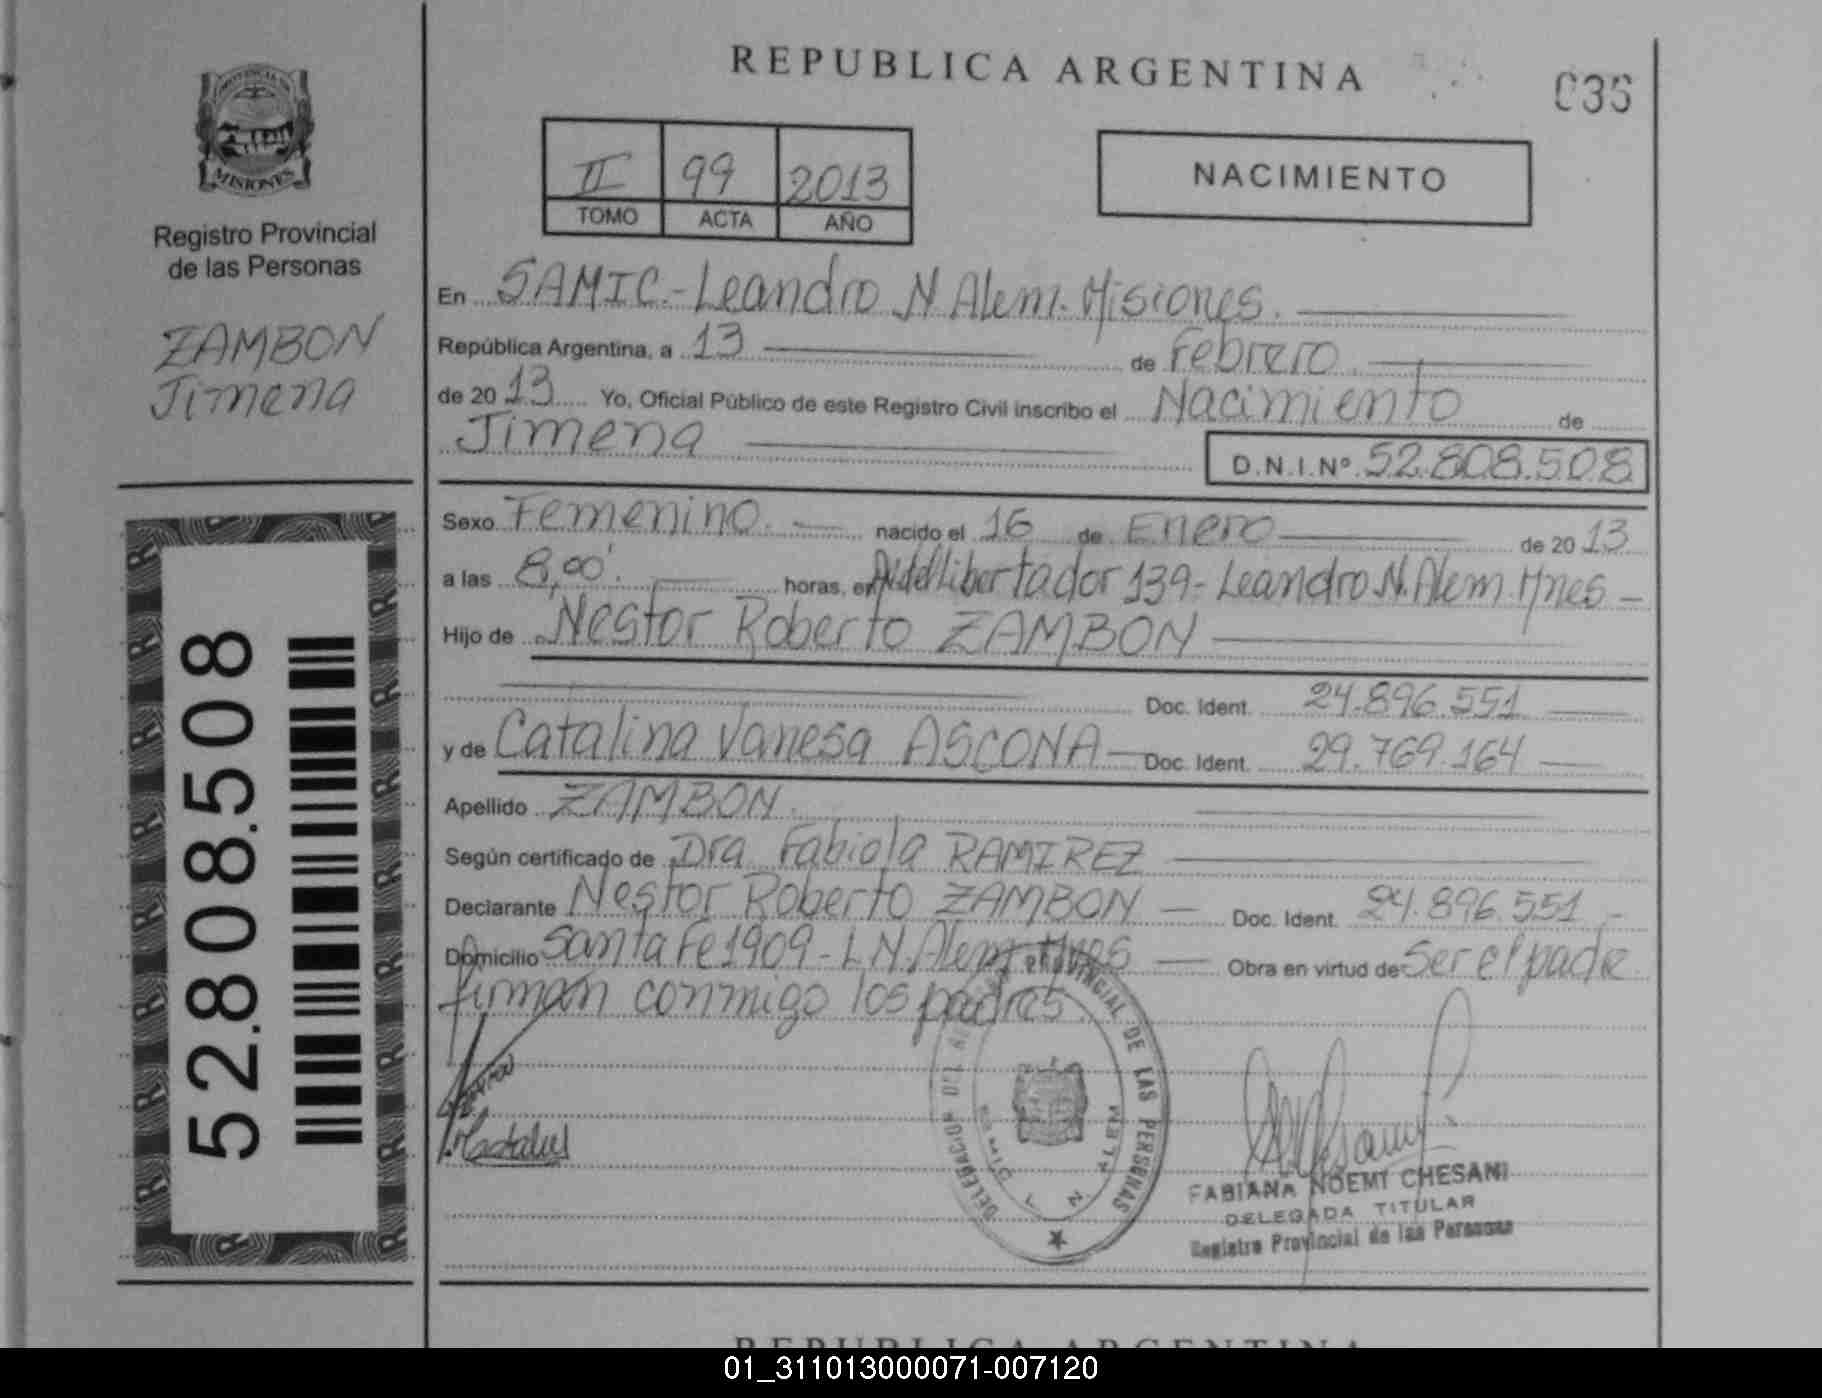 REPUBLICA ARGENTINA
036
PROVINCIA
MISIONES
Registro Provincial
de las Personas
ZAMBON
Jimena
II 99 2013
TOMO ACTA AÑO
NACIMIENTO
En SAMIC.-Leandro N Alem. Misiones.
República Argentina, a 13 de Febrero
de 20 13 Yo, Oficial Público de este Registro Civil inscribo el Nacimiento de
Jimena
D.N.I.Nº 52.808.508
Sexo Femenino. nacido el 16 de Enero de 20 13
a las 8,00'. horas, en Av del Libertador 139- Leandro N. Alem. Mnes -
Hijo de Nestor Roberto ZAMBON
Doc. Ident. 24.896.551
y de Catalina Vanesa ASCONA Doc. Ident. 29.769.164
Apellido ZAMBON.
Según certificado de Dra Fabiola RAMIREZ
Declarante Nestor Roberto ZAMBON Doc. Ident. 24.896.551
Domicilio Santa Fe 1909 - L N. Alem Mnes Obra en virtud de Ser el padre
firman conmigo los padres
52.808.508
DE LAS PERSONAS
DELEGACION
L. N. ALEM
FABIANA NOEMI CHESANI
DELEGADA TITULAR
Registro Provincial de las Personas
REPUBLICA ARGENTINA
01_311013000071-007120